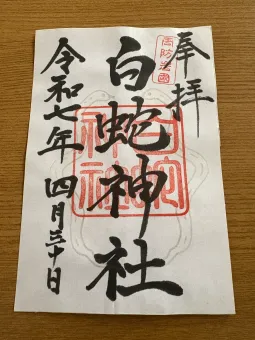 奉拝
周防岩国
白蛇神社
白蛇神社
令和七年 四月三十日